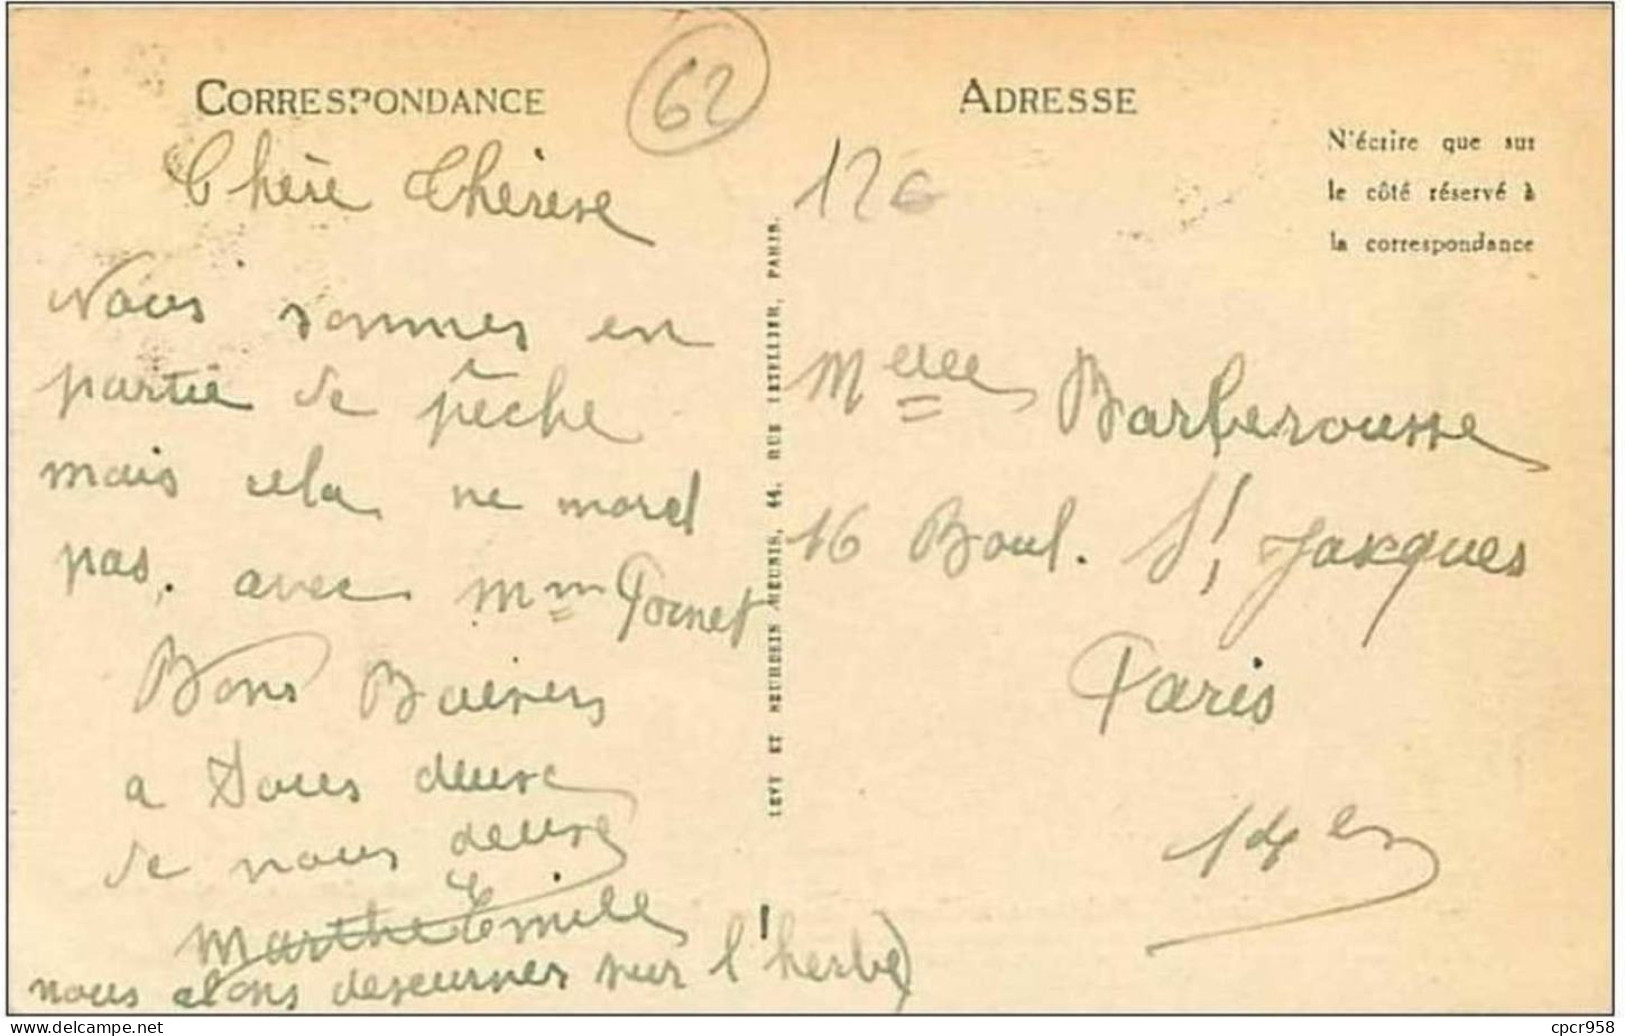 CORRESPONDANCE
62
ADRESSE
N'écrire que sur
le côté réservé à
la correspondance
12€
Chère Thérèse
Nous sommes en
partie de pêche
mais cela ne mord
pas. avec Mme Pornet
Bons Baisers
a Vous deuse
de nous deuse
Marthe Emile
nous alons dejeurner sur l'herbe)
LEVY ET NEURDEIN REUNIS, 44, RUE LETELLIER, PARIS.
Melle Barberousse
16 Boul. St Jacques
Paris
14 em
cpcr958